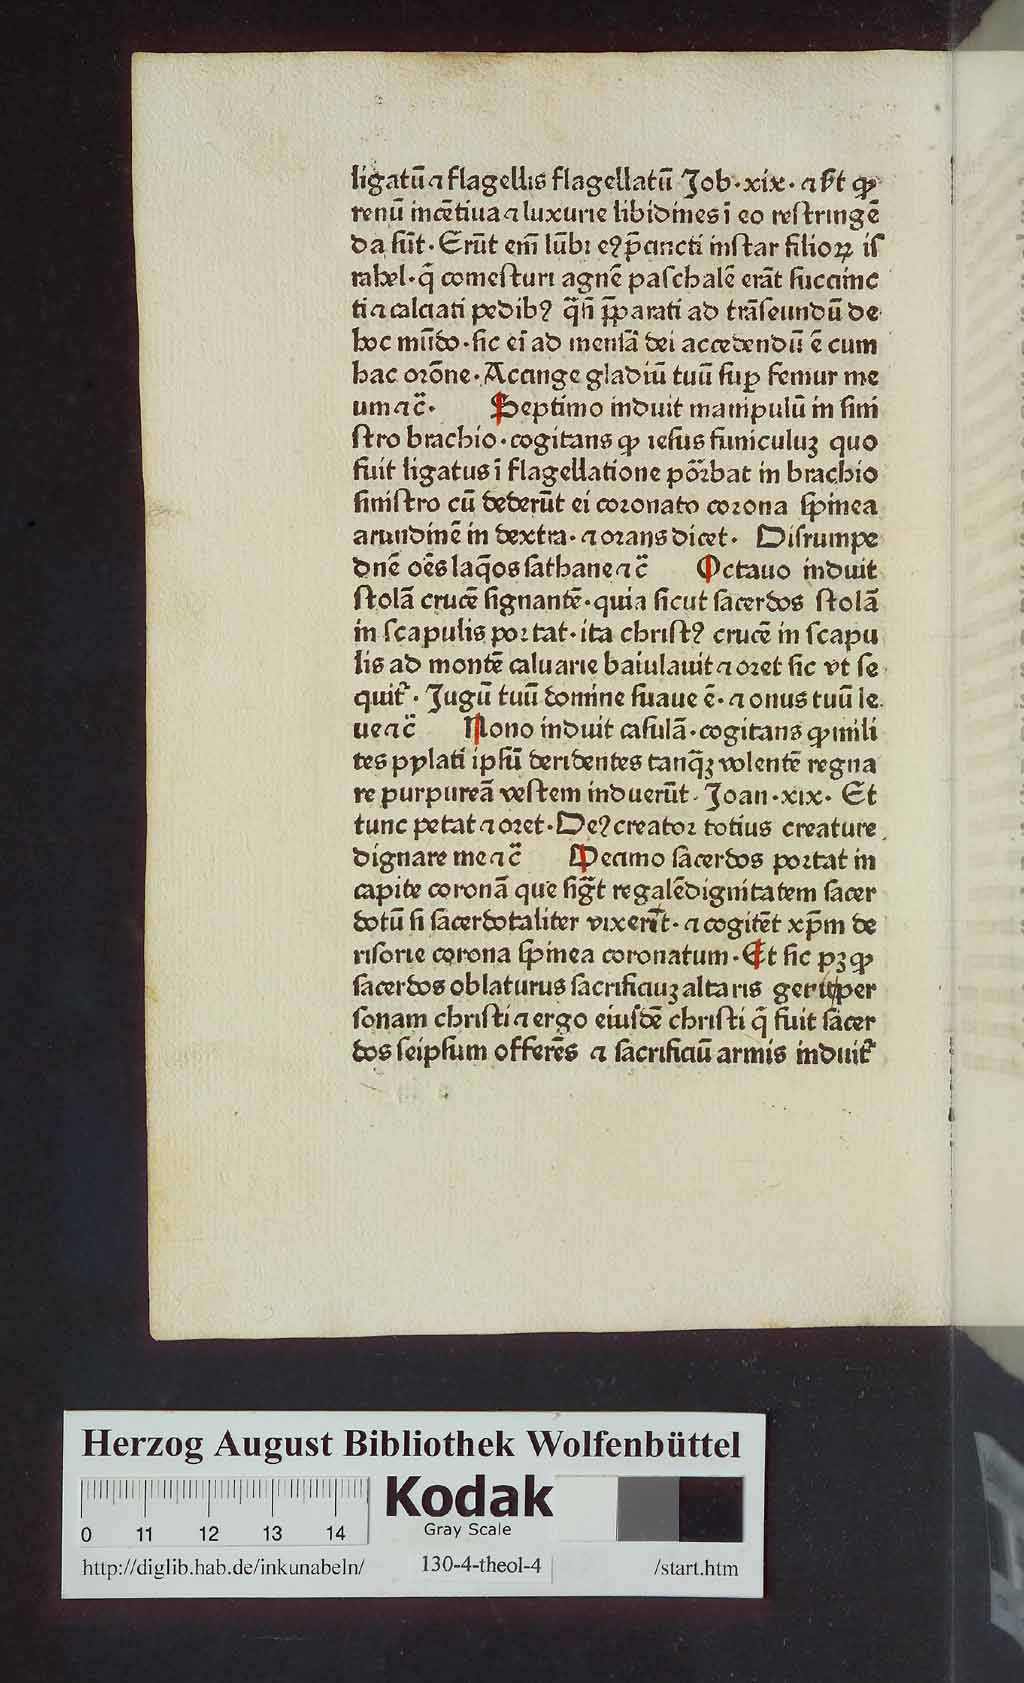 ligatū ⁊ flagellis flagellatū Job·xix· ⁊ hʳt ꝙ
renū incētiua ⁊ luxurie libidines ī eo restringē
da sūt· Erūt em̄ lūbi eꝰ p̄cincti instar filioꝝ is
rahel· q̄ comesturi agnē paschalē erāt succinc
ti ⁊ calciati pedibꝰ q̄si p̄parati ad trāseundū de
hoc mūdo· sic ei̅ ad mensā dei accedendū ē cum
hac orōne· Accinge gladiū tuū suꝑ femur me
um ⁊c̄· Septimo induit manipulū in sini
stro brachio· cogitans ꝙ iesus funiculuꝫ quo
fuit ligatus ī flagellatione portabat in brachio
sinistro cū dederūt ei coronato corona spinea
arundinē in dextra· ⁊ orans dicet· Disrumpe
dn̄e oēs laq̄os sathane ⁊c̄ Octauo induit
stolā crucē signantē· quia sicut sacerdos stolā
in scapulis portat· ita christꝰ crucē in scapu
lis ad montē caluarie baiulauit ⁊ oret sic vt se
quitʳ· Jugū tuū domine suaue ē· ⁊ onus tuū le
ue ⁊c̄ Nono induit casulā· cogitans ꝙ mili
tes pylati ip̄sū deridentes tanq̄ꝫ volentē regna
re purpureā vestem induerūt· Joan·xix· Et
tunc petat ⁊ oret· Deꝰ creator totius creature
dignare me ⁊c̄ Decimo sacerdos portat in
capite coronā que sigᷓt regalē dignitatem sacer
dotū si sacerdotaliter vixerīt· ⁊ cogitēt xp̄m de
risorie corona spinea coronatum· Et sic pꝫ ꝙ
sacerdos oblaturus sacrificiuꝫ altaris gerit per
sonam christi ⁊ ergo eiusdē christi q̄ fuit sacer
dos seipsum offerēs ⁊ sacrificiū armis induitʳ
Herzog August Bibliothek Wolfenbüttel
0 11 12 13 14
Kodak
Gray Scale
http://diglib.hab.de/inkunabeln/ 130-4-theol-4 /start.htm